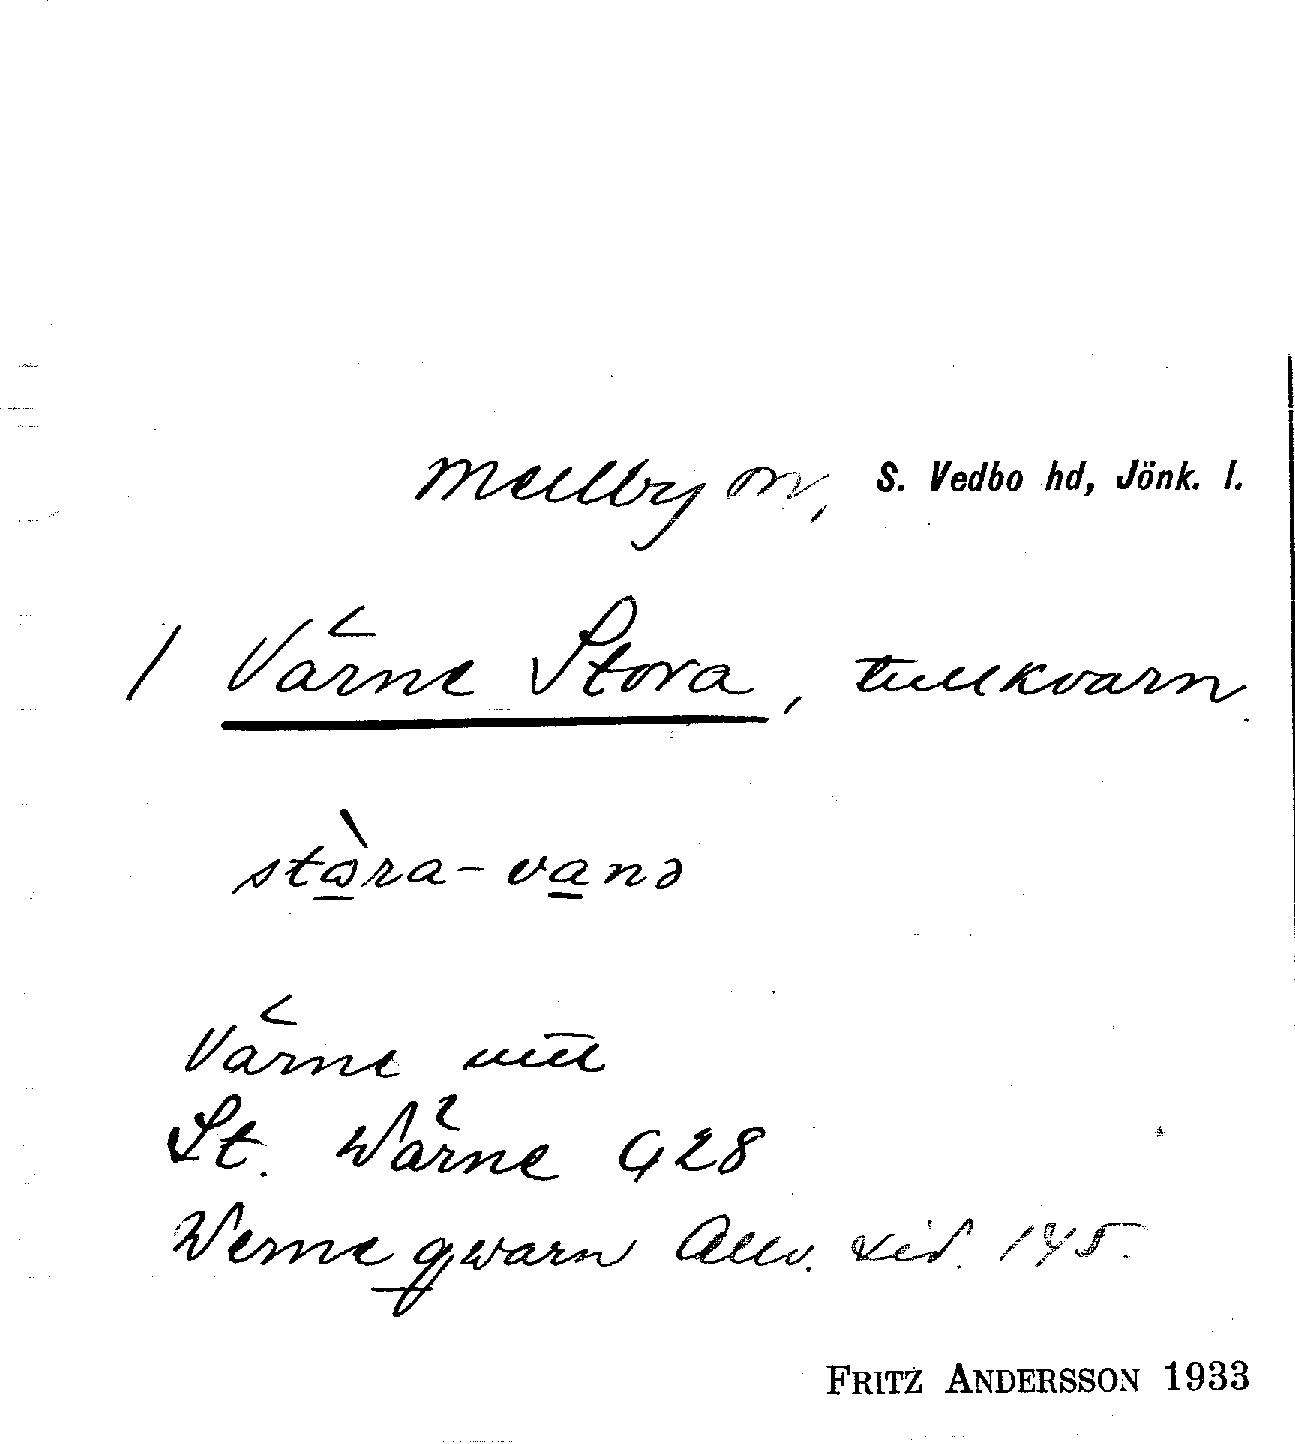 Mellby sn, S. Vedbo hd, Jönk. l.
1 Värne Stora, tullkvarn
stòra-vanə
Värne
St. Wärne G28
Werne qwarn Allv. sid. 145.
FRITZ ANDERSSON 1933